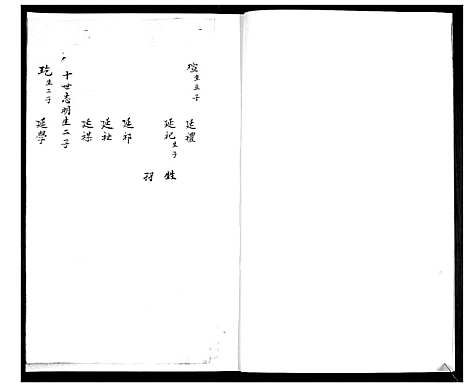 瑄生五子
延禮
延祀生子
姓
羽
延祁
延社
延禖
十世志明生二子
生二子
延學